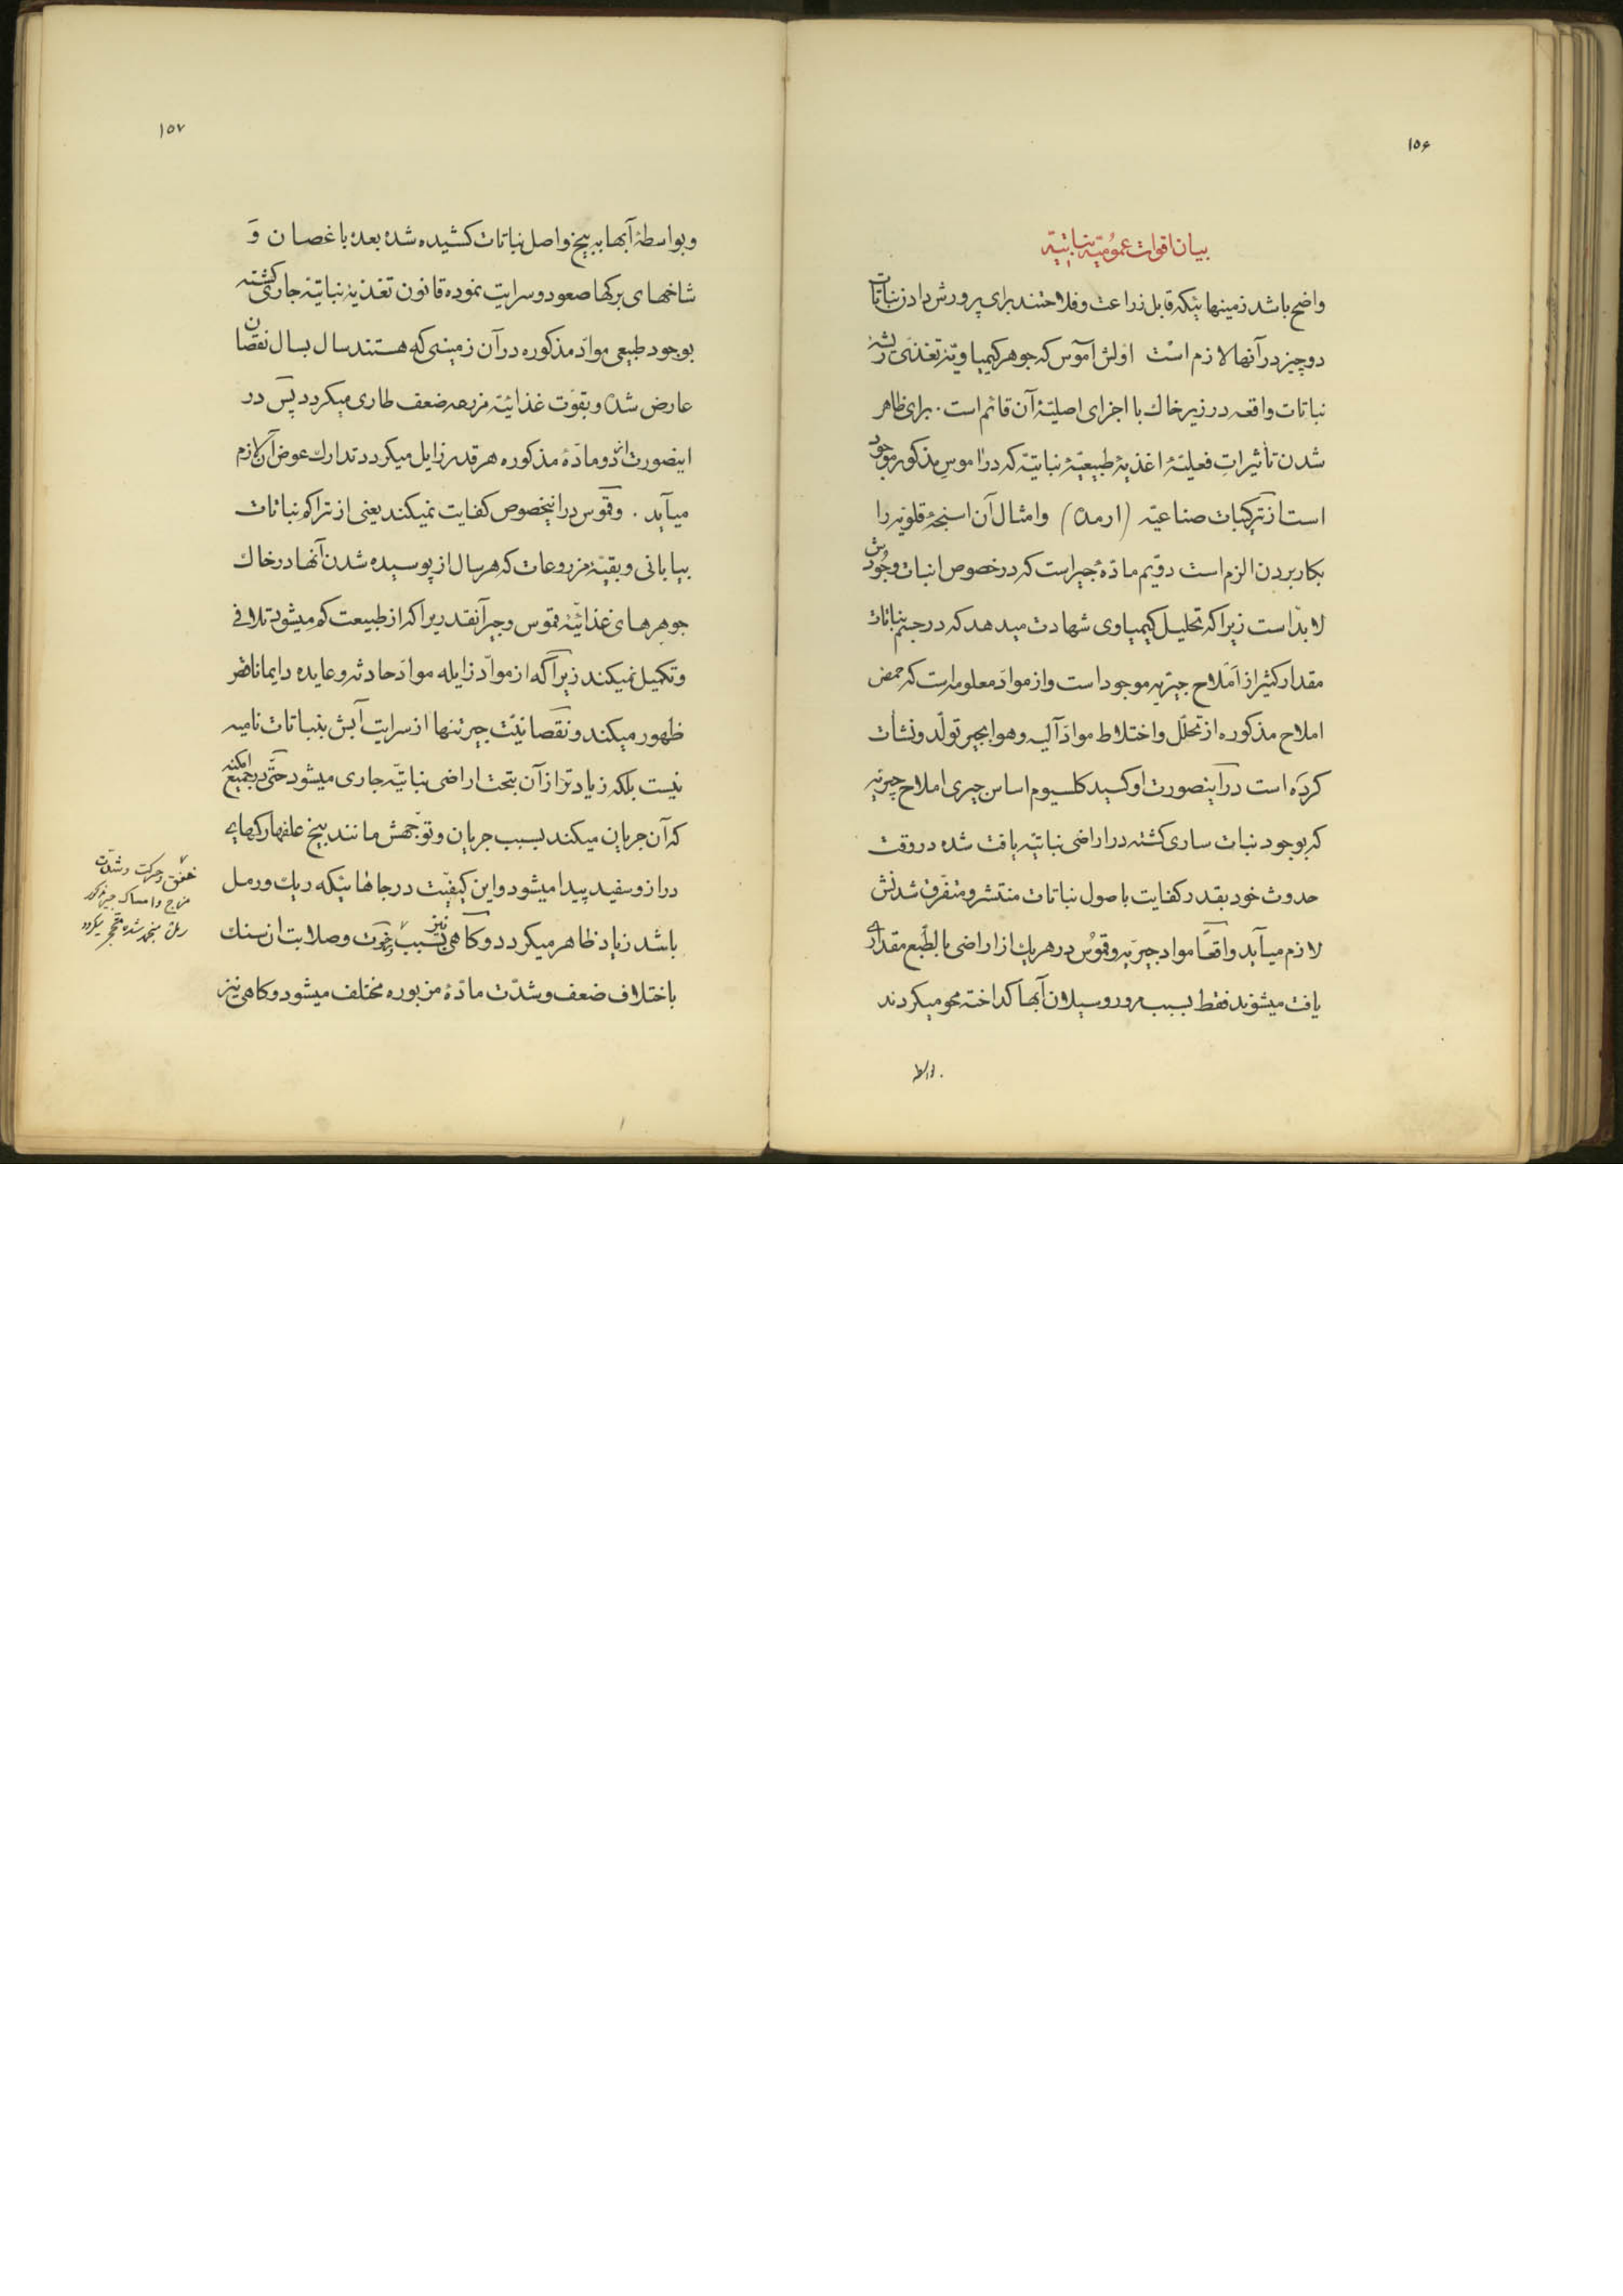 ۱۵۶
بیان اقوات عمومیّهٔ نباتیّه
واضح باشد زمینهائیکه قابل زراعت و فلاحتند برای پرورش دادن نباتات
دو چیز در آنها لازم است اولش آموس که جوهر کیمیاویّهٔ تغذّی ریشهٔ
نباتات واقعه در زیر خاک با اجزای اصلیّهٔ آن قائم است . برای ظاهر
شدن تأثیرات فعلیّهٔ اغذیهٔ طبیعیّهٔ نباتیّه که در اموس مذکور موجود
است از ترکیبات صناعیّه (ارمده) و امثال آن اسنجهٔ قلویّه را
بکار بردن الزم است دویّم مادّهٔ جیر است که در خصوص انبات وجودش
لابدّ است زیرا که تحلیل کیمیاوی شهادت میدهد که در جسم نباتات
مقدار کثیر از املاح جیریّه موجود است و از موادّ معلومه است که حمض
املاح مذکوره از تحلّل و اختلاط موادّ آلیه و هوا بجیر تولّد و نشأت
کرده است در اینصورت اوکسید کلسیوم اساس جیری املاح جیریّه
که بوجود نبات ساری کشته در اراضی نباتیّه یافت شده در وقت
حدوث خود بقدر کفایت باصول نباتات منتشر و متفرّق شدنش
لازم میآید واقعاً مواد جیریّه و قموس در هر یک از اراضی بالطّبع مقداری
یافت میشوند فقط بسبب مرور و سیلان آبها کداخته محو میکردند
۱۵۷
و بواسطهٔ آبها به بیخ و اصل نباتات کشیده شده بعده باغصان و
شاخهای برکها صعود و سرایت نموده قانون تغذیهٔ نباتیّه جاری کشته
بوجود طبیعی موادّ مذکوره در آن زمینی که هستند سال بسال نقصان
عارض شده و بقوّت غذائیّهٔ مزرعه ضعف طاری میکردد پس در
اینصورت از دو مادّهٔ مذکوره هر قدر زایل میکردد تدارک عوض آن لازم
میآید . و قموس در اینخصوص کفایت نمیکند یعنی از تراکم نباتات
بیابانی و بقیّهٔ مزروعات که هر سال از پوسیده شدن آنها در خاک
جوهرهای غذائیّهٔ قموس و جیر آنقدریرا که از طبیعت کم میشود تلافی
و تکمیل نمیکند زیرا که از موادّ زایله موادّ حادثه و عایده دایما ناقص
ظهور میکند و نقصانیّت جیر تنها از سرایت آبش بنباتات نامیه
نیست بلکه زیادتر از آن بتحت اراضی نباتیّه جاری میشود حتّی در جمیع امکنه
که آن جریان میکند بسبب جریان و توجّهش مانند بیخ علفها رکهای
دراز و سفید پیدا میشود و این کیفیّت در جاهائیکه ریک و رمل
باشد زیاد ظاهر میکردد و کاهی نیز بسبب و صلابت ان سنک
باختلاف ضعف و شدّت مادّهٔ مزبوره مختلف میشود و کاهی نیز
و حرکت و شدّت
مزاج و امساک جیر مذکور
رمل منجمد شده متحجّر میکردد